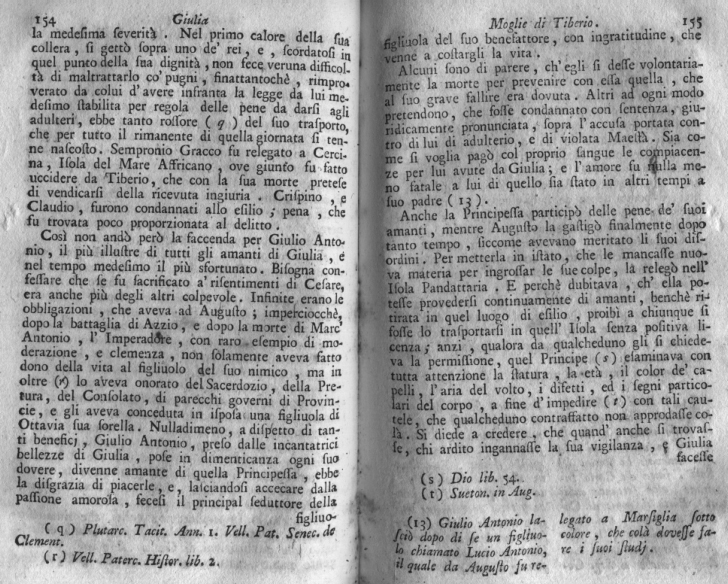 154 Giulia
la medesima severità. Nel primo calore della sua
collera, si gettò sopra uno de' rei, e, scordatosi in
quel punto della sua dignità, non fece veruna difficol-
tà di maltrattarlo co' pugni, finattantochè, rimpro-
verato da colui d'avere infranta la legge da lui me-
desimo stabilita per regola delle pene da darsi agli
adulteri, ebbe tanto rossore (q) del suo trasporto,
che per tutto il rimanente di quella giornata si ten-
ne nascosto. Sempronio Gracco fu relegato a Cerci-
na, Isola del Mare Affricano, ove giunto fu fatto
uccidere da Tiberio, che con la sua morte pretese
di vendicarsi della ricevuta ingiuria. Crispino, e
Claudio, furono condannati allo esilio; pena, che
fu trovata poco proporzionata al delitto.
Così non andò però la faccenda per Giulio Anto-
nio, il più illustre di tutti gli amanti di Giulia, e
nel tempo medesimo il più sfortunato. Bisogna con-
fessare che se fu sacrificato a' risentimenti di Cesare,
era anche più degli altri colpevole. Infinite erano le
obbligazioni, che aveva ad Augusto; imperciocchè,
dopo la battaglia di Azzio, e dopo la morte di Marc'
Antonio, l'Imperadore, con raro esempio di mo-
derazione, e clemenza, non solamente aveva fatto
dono della vita al figliuolo del suo nimico, ma in
oltre (r) lo aveva onorato del Sacerdozio, della Pre-
tura, del Consolato, di parecchi governi di Provin-
cie, e gli aveva conceduta in isposa una figliuola di
Ottavia sua sorella. Nulladimeno, a dispetto di tan-
ti beneficj, Giulio Antonio, preso dalle incantatrici
bellezze di Giulia, pose in dimenticanza ogni suo
dovere, divenne amante di quella Principessa, ebbe
la disgrazia di piacerle, e, lasciandosi accecare dalla
passione amorosa, fecesi il principal seduttore della
figliuo-
(q) Plutarc. Tacit. Ann. 1. Vell. Pat. Senec. de
Clement.
(r) Vell. Paterc. Histor. lib. 2.
Moglie di Tiberio. 155
figliuola del suo benefattore, con ingratitudine, che
venne a costargli la vita.
Alcuni sono di parere, ch'egli si desse volontaria-
mente la morte per prevenire con essa quella, che
al suo grave fallire era dovuta. Altri ad ogni modo
pretendono, che fosse condannato con sentenza, giu-
ridicamente pronunciata, sopra l'accusa portata con-
tro di lui di adulterio, e di violata Maestà. Sia co-
me si voglia pagò col proprio sangue le compiacen-
ze per lui avute da Giulia; e l'amore fu nulla me-
no fatale a lui di quello sia stato in altri tempi a
suo padre (13).
Anche la Principessa participò delle pene de' suoi
amanti, mentre Augusto la gastigò finalmente dopo
tanto tempo, siccome avevano meritato li suoi dis-
ordini. Per metterla in istato, che le mancasse nuo-
va materia per ingrossar le sue colpe, la relegò nell'
Isola Pandattaria. E perchè dubitava, ch'ella po-
tesse provedersi continuamente di amanti, benchè ri-
tirata in quel luogo di esilio, proibì a chiunque si
fosse lo trasportarsi in quell'Isola senza positiva li-
cenza; anzi, qualora da qualcheduno gli si chiede-
va la permissione, quel Principe (s) esaminava con
tutta attenzione la statura, la età, il color de' ca-
pelli, l'aria del volto, i difetti, ed i segni partico-
lari del corpo, a fine d'impedire (t) con tali cau-
tele, che qualcheduno contraffatto non approdasse co-
là. Si diede a credere, che quand'anche si trovas-
se, chi ardito ingannasse la sua vigilanza, e Giulia
facesse
(s) Dio lib. 54.
(t) Sueton. in Aug.
(13) Giulio Antonio la-
sciò dopo di se un figliuo-
lo chiamato Lucio Antonio,
il quale da Augusto fu re-
legato a Marsiglia sotto
colore, che colà dovesse fa-
re i suoi studj.